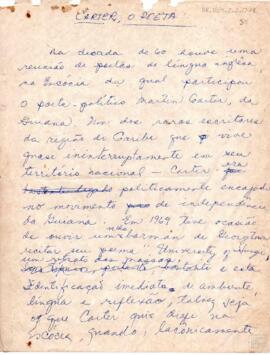 CARTER, O POETA
Na década de 60 houve uma
reunião de poetas de língua inglesa
na Escócia da qual participou
o poeta-político Martin Carter, da
Guiana. Um dos raros escritores
da região do Caribe que vive
quase ininterruptamente em seu
território nacional — Carter era
politicamente engajado
no movimento de independência
da Guiana. Em 1969 tive ocasião
de ouvir um barman de Georgetown
recitar seu poema "University of Hunger,
um retrato das massas,
e esta
identificação imediata de ambiente,
língua e reflexão, talvez seja
o que Carter quis dizer na
Escócia, quando, laconicamente